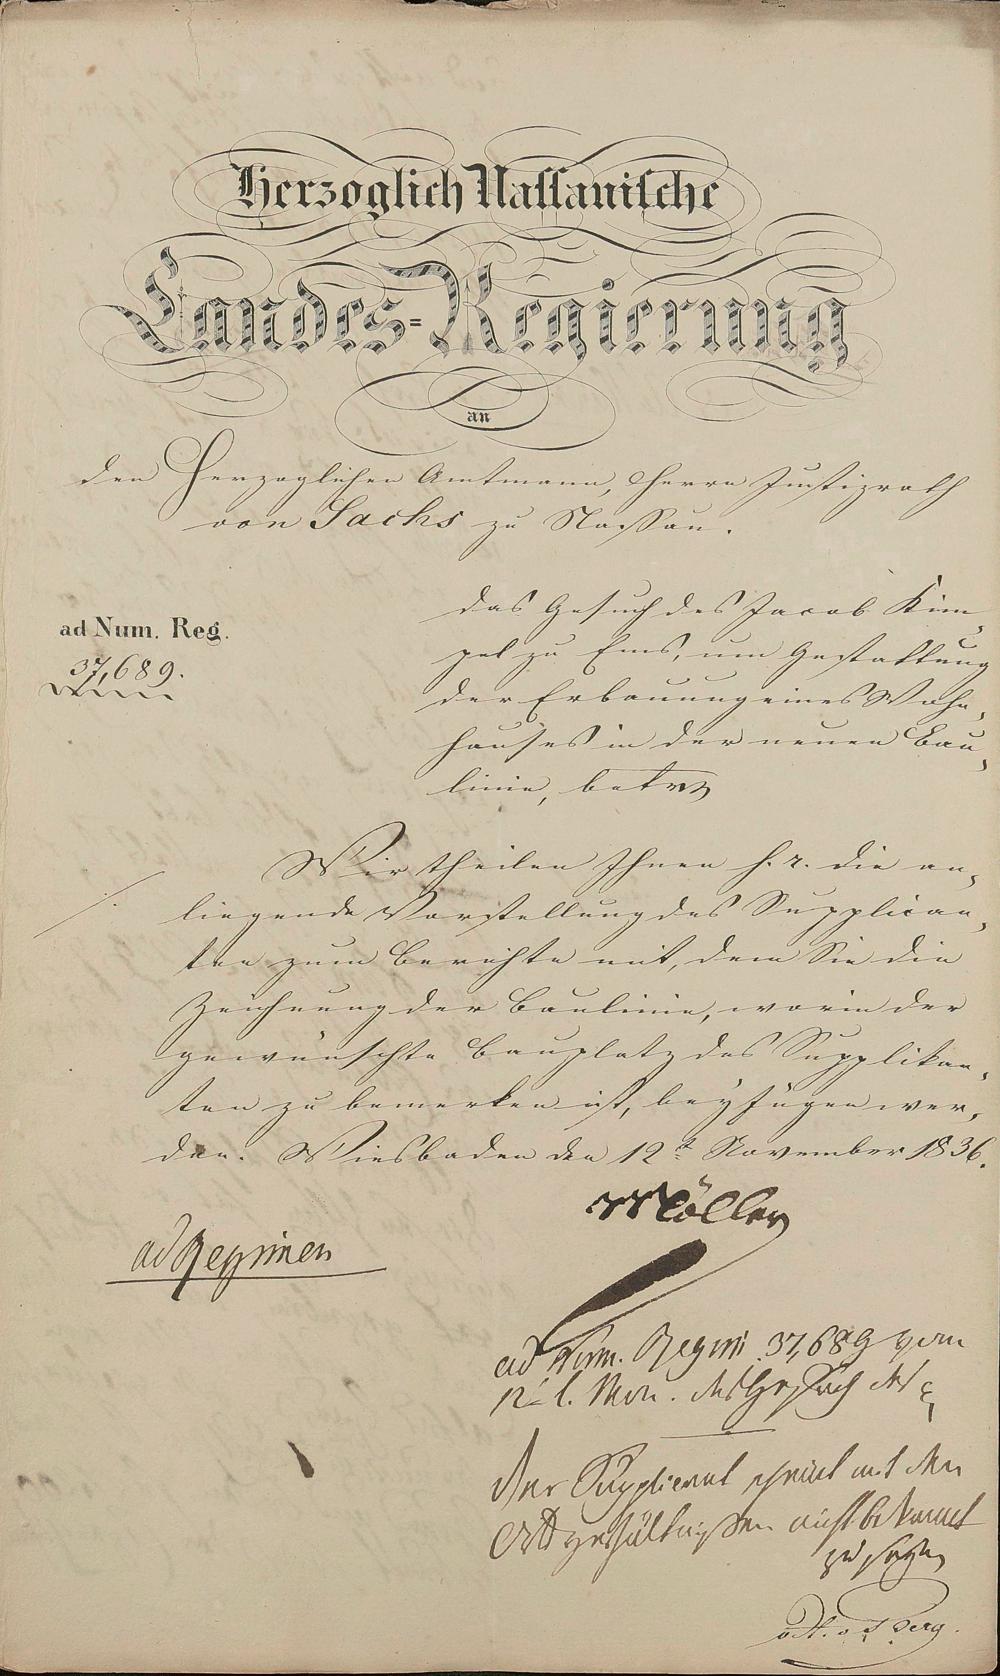 Herzoglich Nassauische
Landes=Regierung
an
den Herzoglichen Amtmann, Herrn Justizrath
von Sachs zu Nassau.
ad Num. Reg.
37,689.
das Gesuch des Jacob Kim-
pel zu Ems, um Gestattung
der Erbauung eines Wohn-
hauses in der neuen Bau-
linie, betr
Wir theilen Ihnen h. r. die an-
liegende Vorstellung des Supplican-
ten zum Berichte mit, dem Sie die
Zeichnung der Baulinie, worin der
gewünschte Bauplatz des Supplikan-
ten zu bemerken ist, beyfügen wer-
den. Wiesbaden den 12t November 1836.
Möller
ad Regimen
ad Num. Regim. 37,689 vom
12t l. Mon. das Gesuch des
Der Supplicant scheint mit den
nicht bekannt
zu seyn